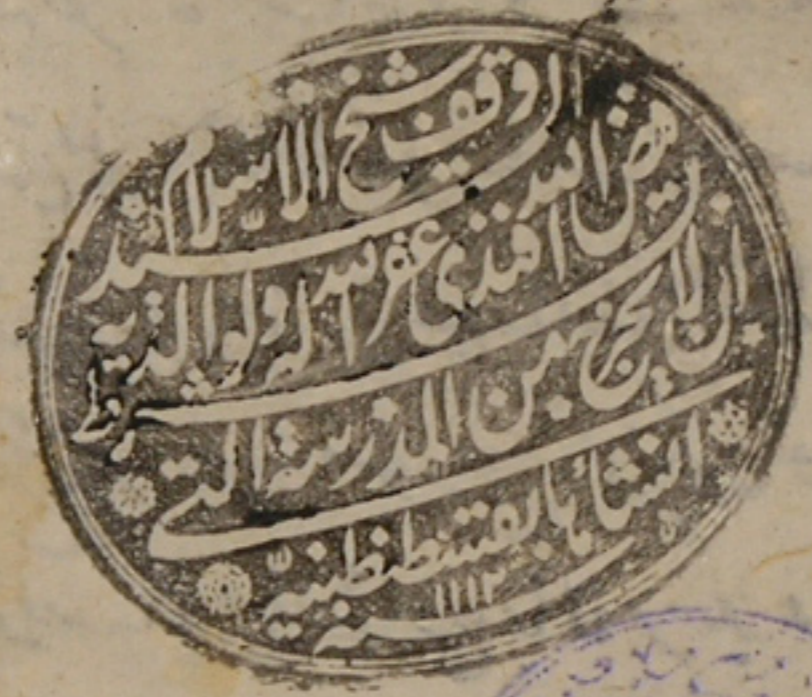 اوقف شيخ الاسلام سيد
فيض الله افندى غفر الله له ولوالديه بشرط
ان لا يخرج من المدرسة التى
انشأها بقسطنطنية
سنه ١١١٢